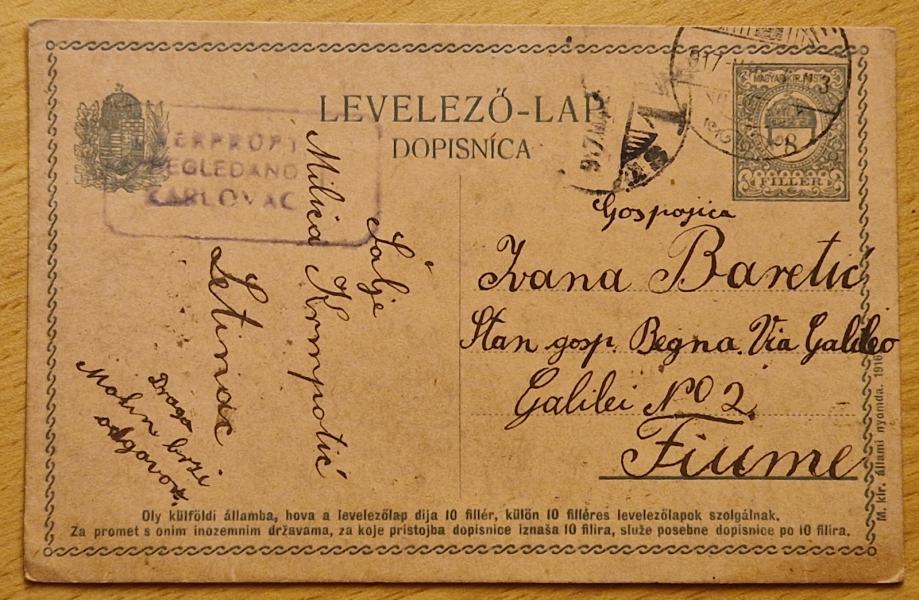 LEVELEZŐ-LAP
DOPISNÍCA
ÜERPRÜFT
PEGLEDANO
KARLOVAC
MAGYAR KIR. POSTA
8
FILLÉR
917
Gospojica
Ivana Baretić
Stan gosp. Begna. Via Galileo
Galilei No 2.
Fiume
Šalje
Milica Krmpotić
Letinac
Draga
Molim brzi
odgovor.
Oly külföldi államba, hova a levelezőlap dija 10 fillér, külön 10 filléres levelezőlapok szolgálnak.
Za promet s onim inozemnim državama, za koje pristojba dopisnice iznaša 10 filira, služe posebne dopisnice po 10 filira.
M. kir. állami nyomda. 1916